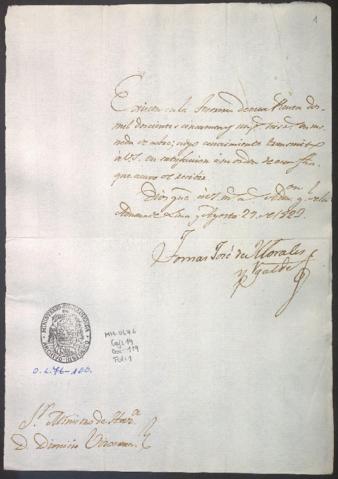 1
Existen en la Tesoreria de esta Aduana dos
mil doscientos cincuenta y un pesos en mo-
neda de cobre; cuyo conocimiento transmito
à VS. en satisfaccion à su orden de
que acuso el recibo
Dios gue à VS. m. a.
Aduana de Lima y Agosto 23 de 1823
Tomas José de Morales
y Ugalde
MINISTERIO DE HACIENDA
ARCHIVO HISTORICO
O.L. 76-100.
MH-OL76
Caja 19
Doc: 119
Fol: 1
Sr. Ministro de Hazda
D. Dionicio Vizcarra